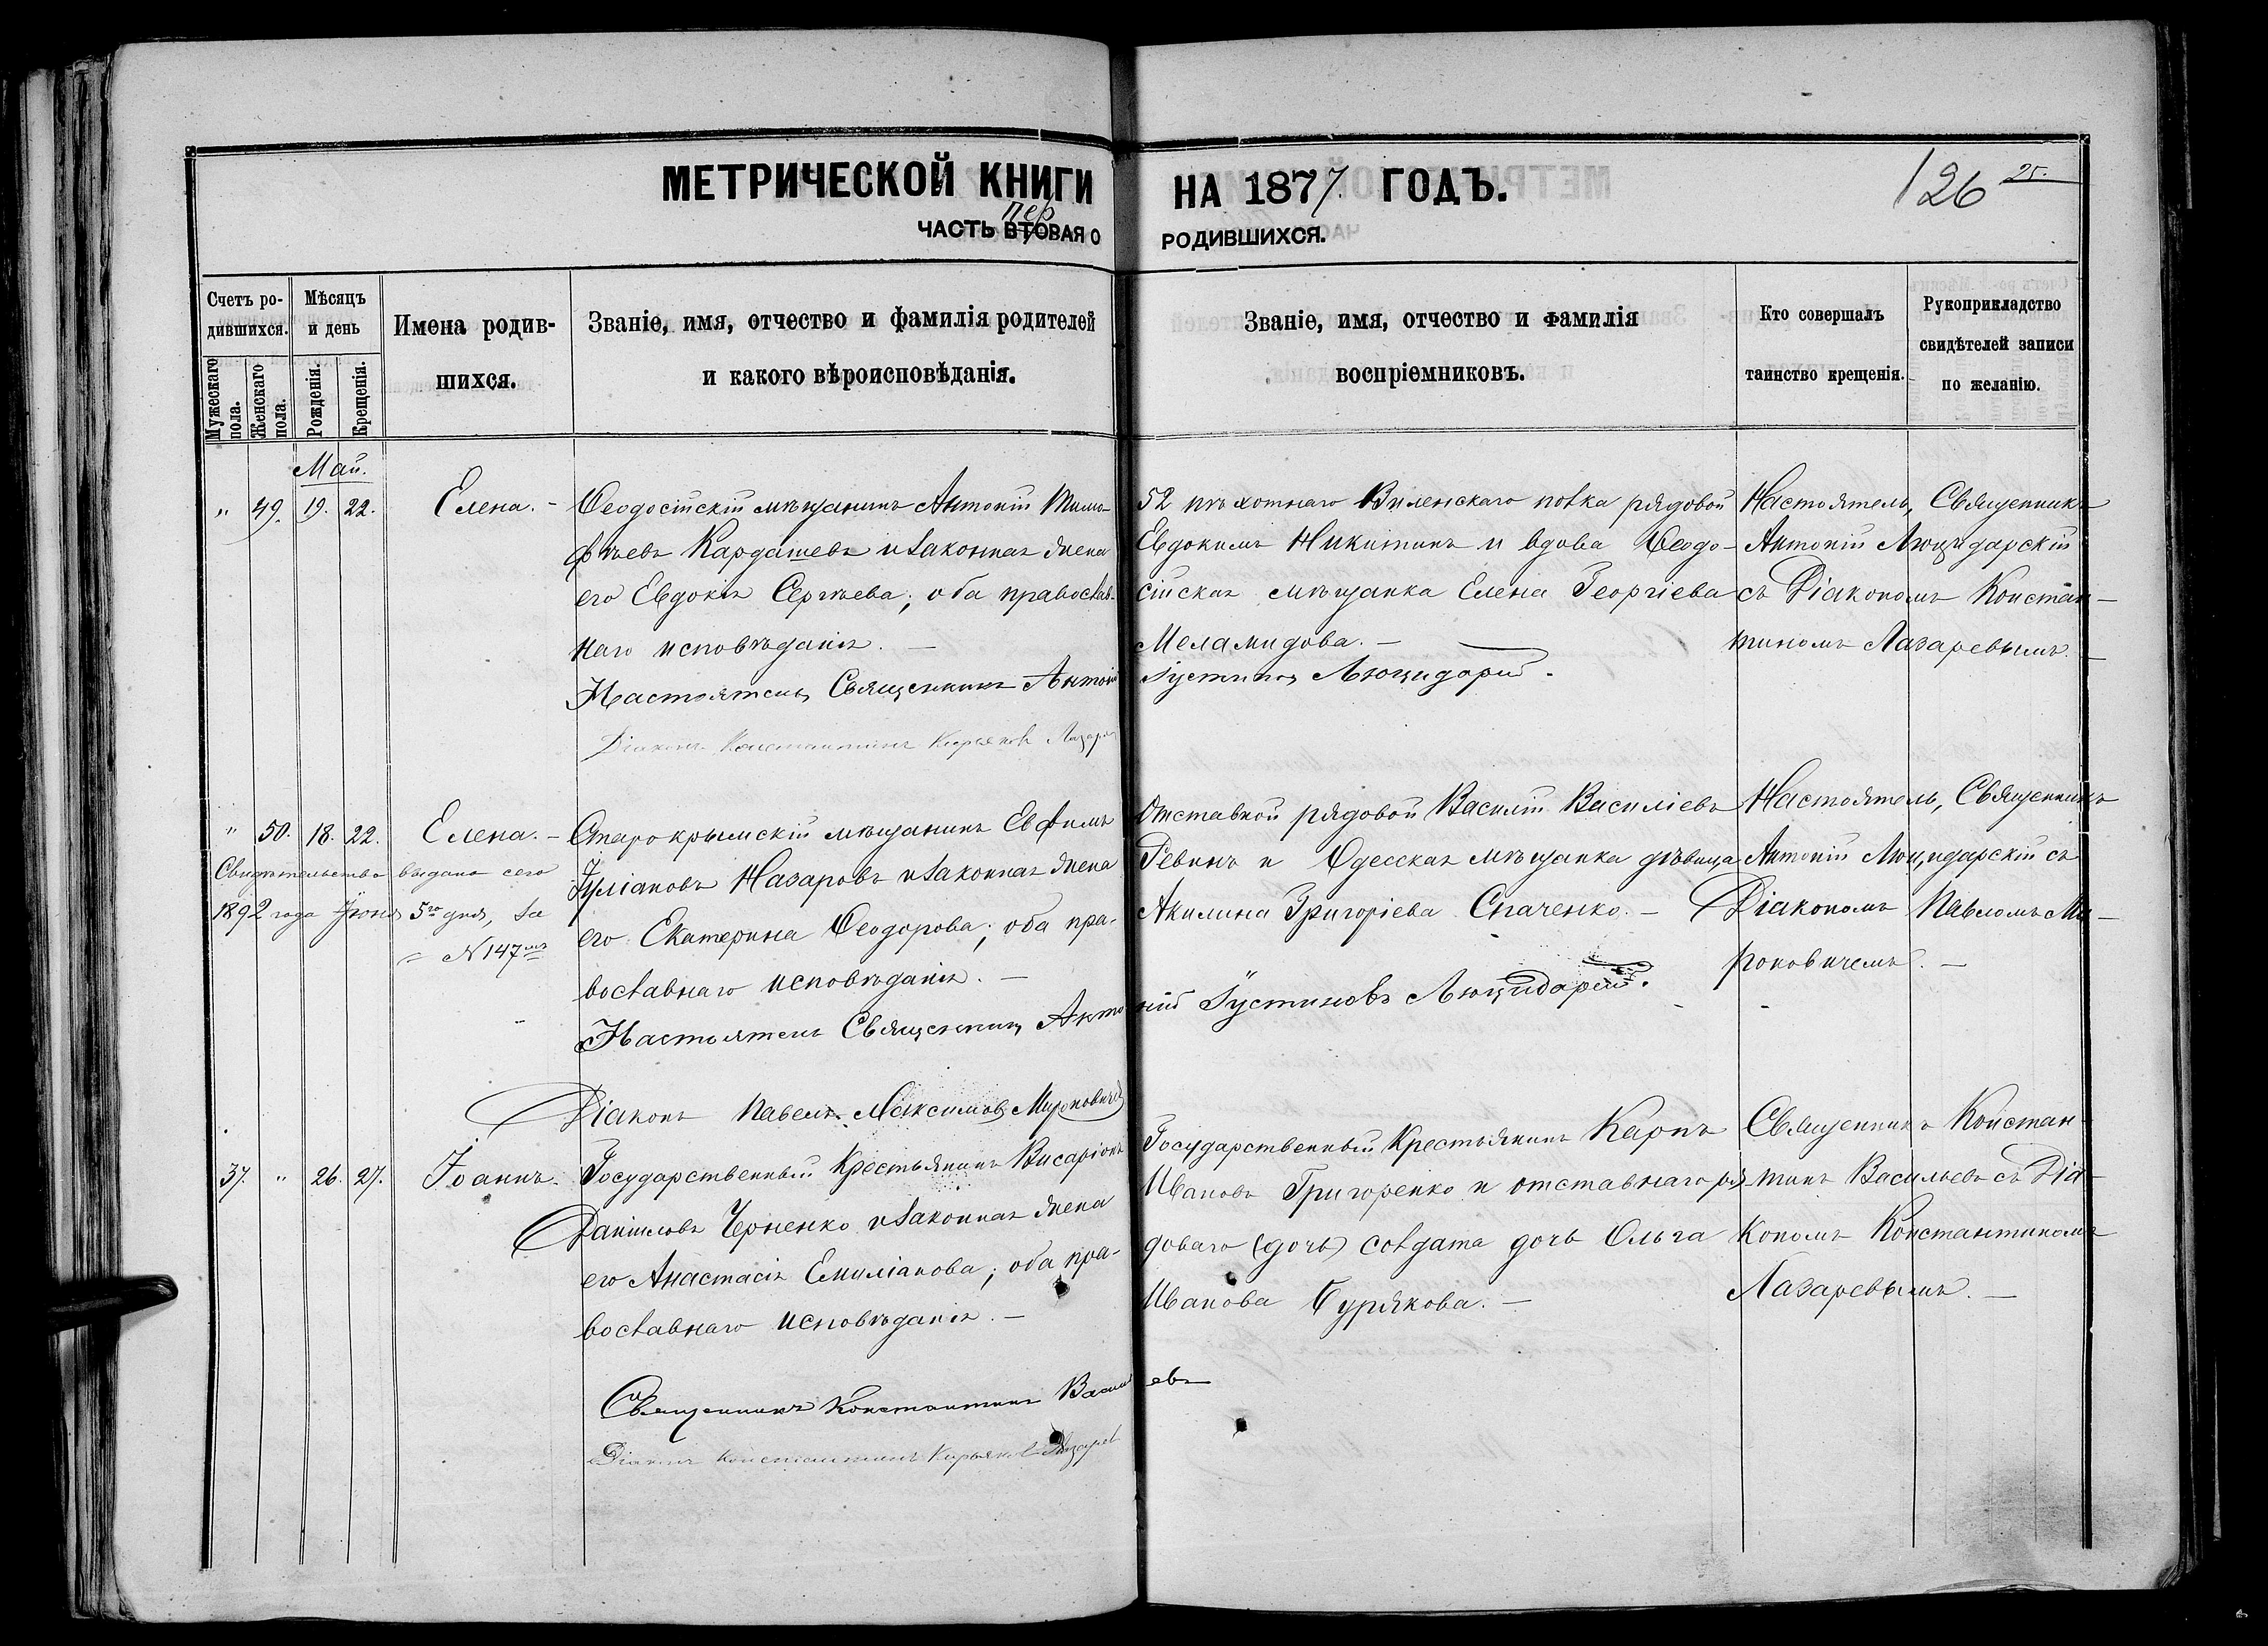 МЕТРИЧЕСКОЙ КНИГИ НА 1877 ГОДЪ.
126 25.
пер
ЧАСТЬ ВТОРАЯ О РОДИВШИХСЯ.
Счетъ ро-
дившихся.
Мужескаго пола.
Женскаго пола.
Мѣсяцъ
и день
Рожденія.
Крещенія.
Имена родив-
шихся.
Званіе, имя, отчество и фамилія родителей
и какого вѣроисповѣданія.
Званіе, имя, отчество и фамилія
воспріемниковъ.
Кто совершалъ
таинство крещенія.
Рукоприкладство
свидѣтелей записи
по желанію.
Май.
" 49. 19. 22. Елена. –
Ѳеодосійскій мѣщанинъ Антоній Тимо-
фѣевъ Кардашевъ и законная жена
его Евдокія Сергѣева; оба православ-
наго исповѣданія. –
52 пѣхотнаго Виленскаго полка рядовой
Евдокимъ Никитинъ и вдова Ѳеодо-
сійская мѣщанка Елена Георгіева
Меламидова. –
Настоятель, Священникъ
Антоній Люцидарскій
съ Діакономъ Констан-
тиномъ Лазаревымъ. –
Настоятель Священникъ Антоній Іустиновъ Люцидарскій.
Діаконъ Константинъ Кирьяковъ Лазарев
" 50. 18. 22. Елена. –
Свидѣтельство выдано сего
1892 года Іюня 5го дня, за
№ 147мъ
Старокрымскій мѣщанинъ Евфимъ
Іуліановъ Назаровъ и законная жена
его Екатерина Ѳеодорова; оба пра-
вославнаго исповѣданія. –
Отставной рядовой Василій Василіевъ
Ревинъ и Одесская мѣщанка дѣвица
Акилина Григоріева Спаченко. –
Настоятель, Священникъ
Антоній Люцидарскій съ
Діакономъ Павломъ Ми-
роновичемъ. –
Настоятель Священникъ Антоній Іустиновъ Люцидарскій.
Діаконъ Павелъ Максимовъ Мироновичъ
37. " 26. 27. Іоаннъ.
Государственный Крестьянинъ Висаріонъ
Даніиловъ Черненко и законная жена
его Анастасія Емиліанова; оба пра-
вославнаго исповѣданія. –
Государственный Крестьянинъ Карпъ
Ивановъ Григоренко и отставнаго ря-
доваго (дочь) солдата дочь Ольга
Иванова Бурякова. –
Священникъ Констан-
тинъ Васильевъ съ Діа-
кономъ Константиномъ
Лазаревымъ. –
Священникъ Константинъ Васильевъ
Діаконъ Константинъ Кирьяковъ Лазарев